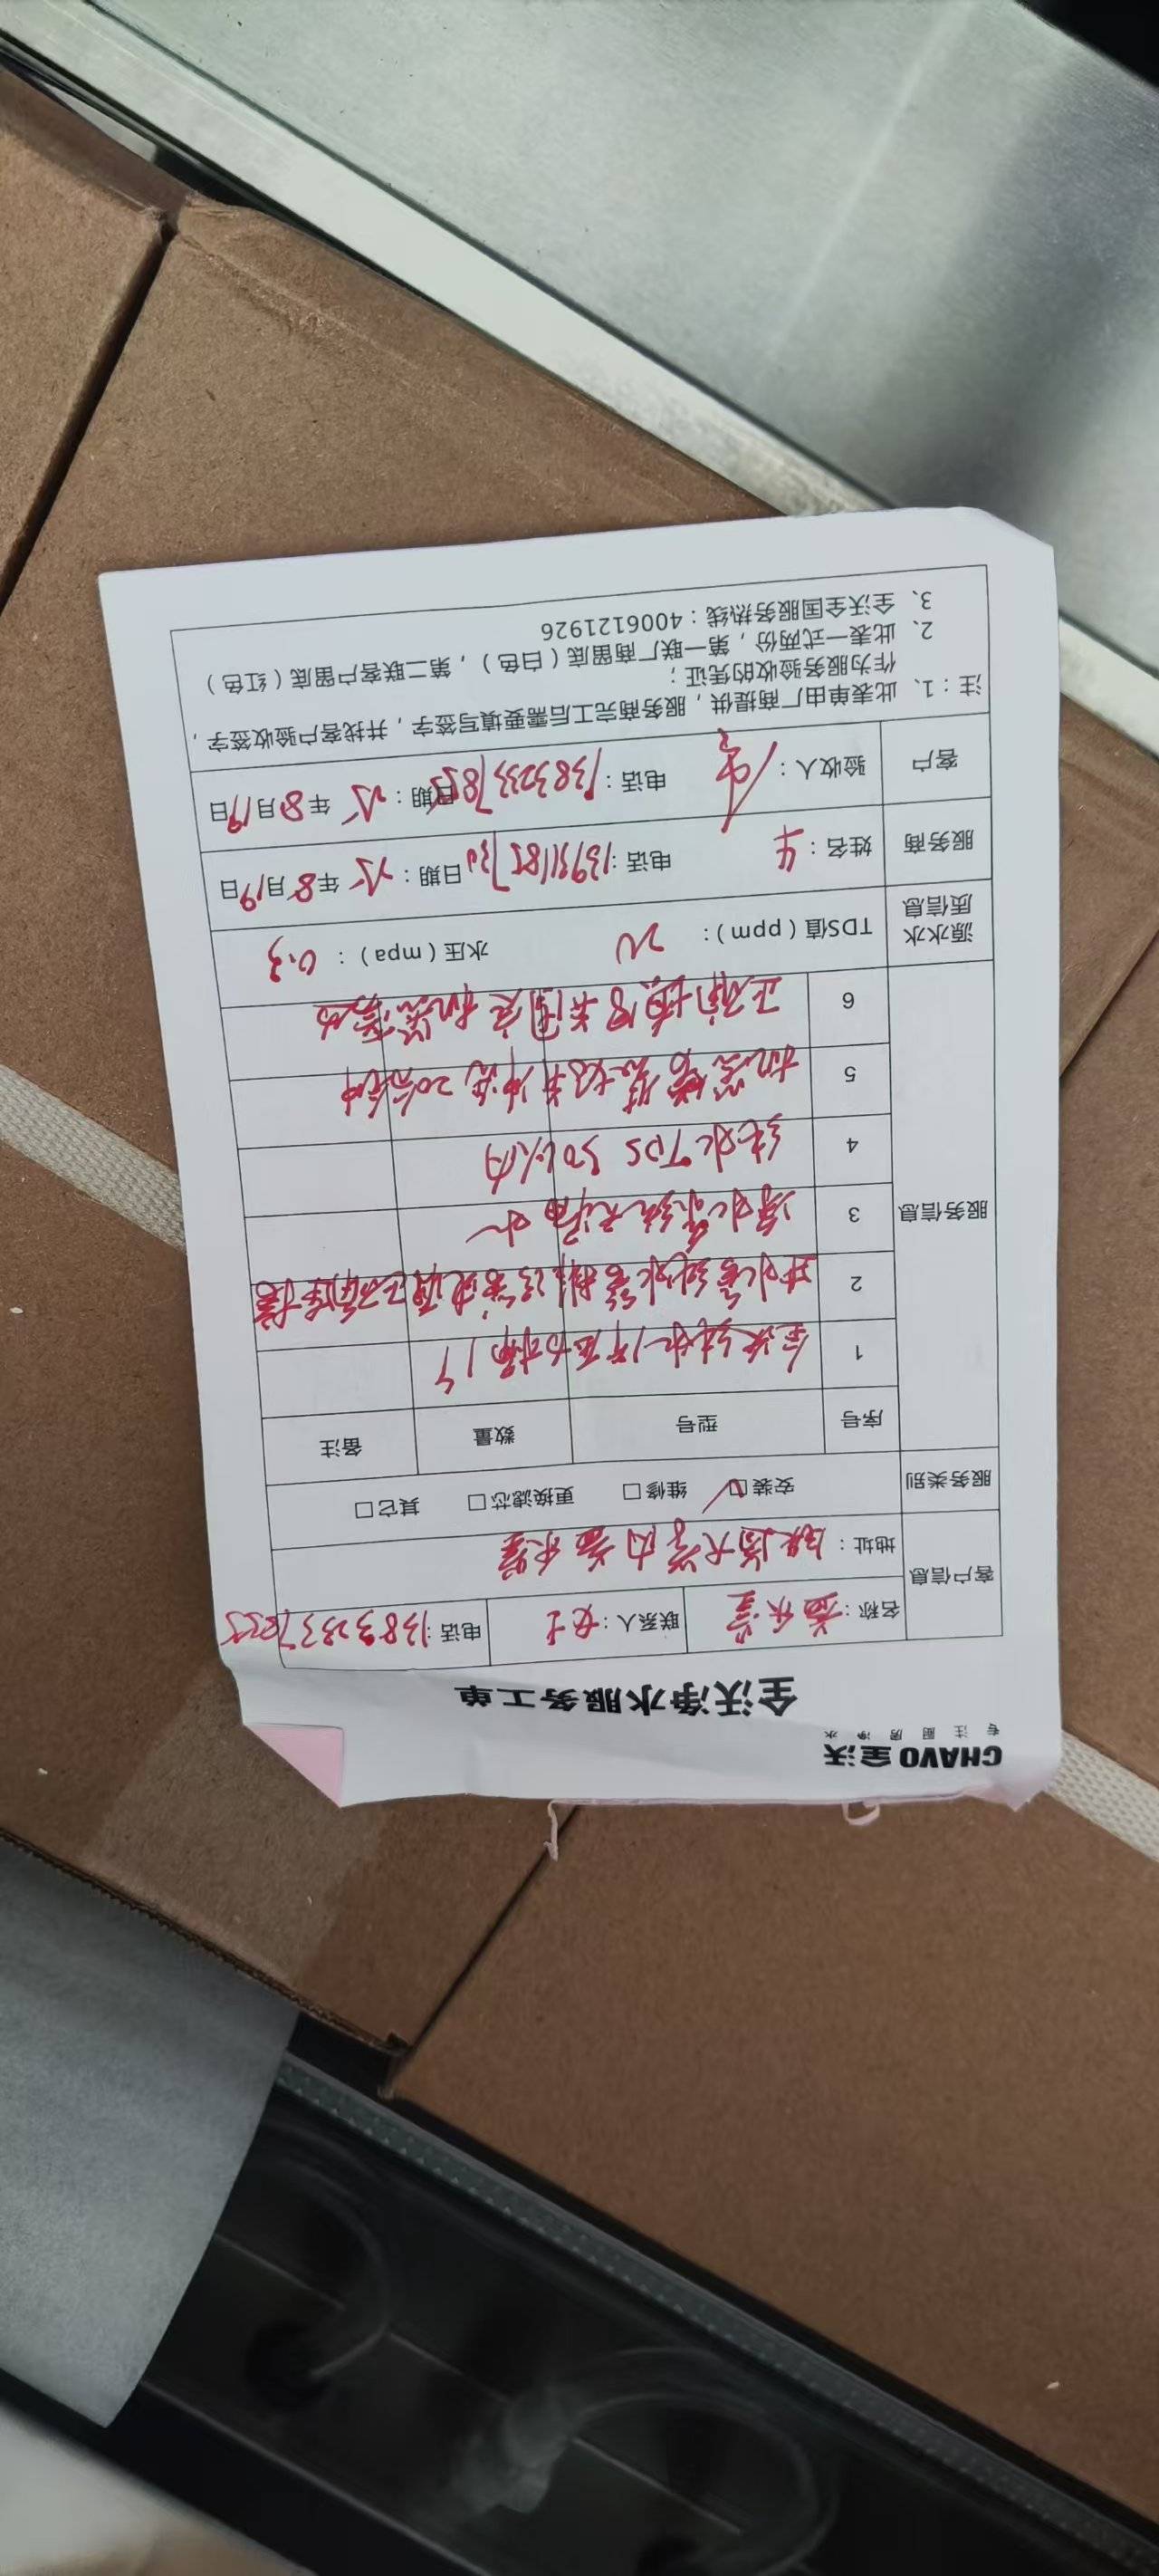 CHAVO全沃
专注厨房净水
全沃净水服务工单
客户信息 名称：益禾堂 联系人：女士 电话：13832337855
地址：铁道大学内益禾堂
服务类别 安装☑ 维修□ 更换滤芯□ 其它□
服务信息 序号 型号 数量 备注
1 全沃纯水 1个
2 进水管纯水管
3 净水系统无漏水
4 纯水TDS 50以内
5 机器安装好并冲洗20分钟
6
源水水质信息 TDS值（ppm）： 水压（mpa）：0.3
服务商 姓名：牛 电话：13931185730 日期：25年8月19日
客户 验收人： 电话：13832337855 日期：25年8月19日
注：1、此表单由厂商提供，服务商完工后需要填写签字，并找客户验收签字，
作为服务验收的凭证；
2、此表一式两份，第一联厂商留底（白色），第二联客户留底（红色）
3、全沃全国服务热线：4006121926